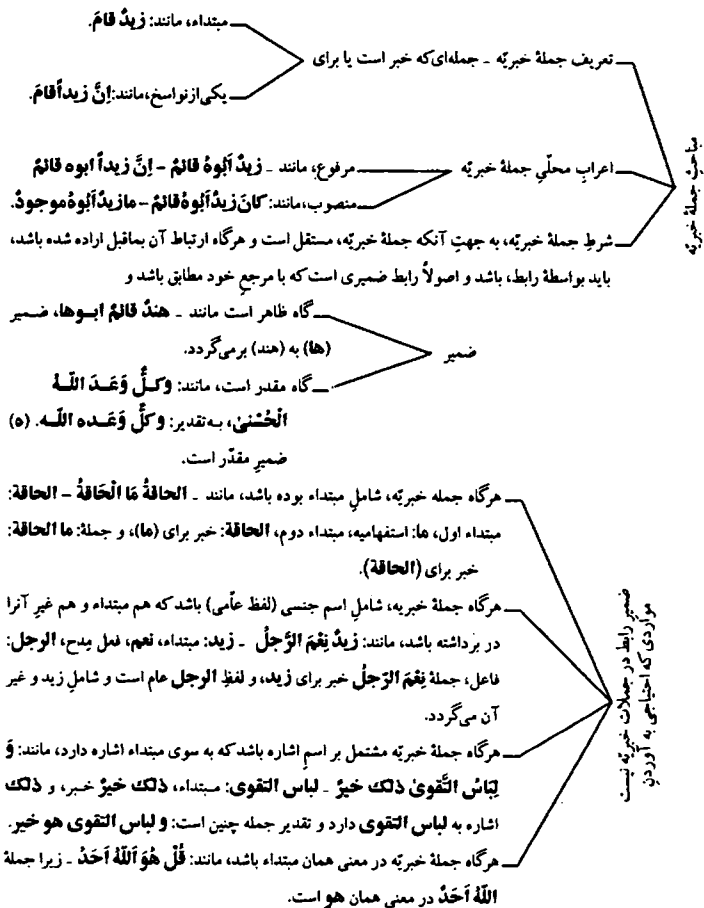 مباحثِ جملهٔ خبریّه
مبتداء، مانند: زیدٌ قامَ.
تعریف جملهٔ خبریّه - جمله‌ای‌که خبر است یا برای
یکی‌ازنواسخ،مانند:اِنَّ زیداًقامَ.
اعرابِ محلّیِ جملهٔ خبریّه
مرفوع، مانند - زیدٌ اَبُوهُ قائمٌ - اِنَّ زیداً ابوه قائمٌ
منصوب،مانند: کانَ‌زیدٌاَبُوهُ‌قائمٌ-مازیدٌاَبُوهُ‌موجودٌ.
شرطِ جملهٔ خبریّه، به جهتِ آنکه جملهٔ خبریّه، مستقل است و هرگاه ارتباط آن بماقبل اراده شده باشد،
باید بواسطهٔ رابط، باشد و اصولاً رابط ضمیری است‌که با مرجعِ خود مطابق باشد و
ضمیر
گاه ظاهر است مانند - هندٌ قائمٌ ابـوها، ضـمیر
(ها) به (هند) برمی‌گردد.
گاه مقدر است، مانند: وکـلٌّ وَعَـدَ اللّـهُ
الْحُسْنیٰ، بـه‌تقدیر: وکلٌّ وَعَـده اللّـه. (ه)
ضمیرِ مقدّر است.
مواردی که احتیاجی به آوردنِ
ضمیرِ رابط در جملات خبریّه نیست
هرگاه جمله خبریّه، شاملِ مبتداء بوده باشد، مانند - الحاقةُ مَا الْحَاقةُ - الحاقة:
مبتداء اول، ما: استفهامیه، مبتداء دوم، الحاقة: خبر برای (ما)، و جملهٔ: ما الحاقة:
خبر برای (الحاقة).
هرگاه جملهٔ خبریه، شاملِ اسم جنسی (لفظ عاّمی) باشد که هم مبتداء و هم غیرِ آنرا
در برداشته باشد، مانند: زیدٌ نِعْمَ الرَّجلُ - زید: مبتداء، نعم، فعل مِدح، الرجل:
فاعل، جملهٔ نِعْمَ الرّجلُ خبر برای زید، و لفظِ الرجل عام است و شاملِ زید و غیر
آن می‌گردد.
هرگاه جملهٔ خبریّه مشتمل بر اسمِ اشاره باشد که به سوی مبتداء اشاره دارد، مانند: وَ
لِبَاسُ التَّقویٰ ذلك خیرٌ - لباس التقوی: مـبتداء، ذلك خیرٌ خـبر، و ذلك
اشاره به لباس التقوی دارد و تقدیر جمله چنین است: و لباس التقوی هو خیر.
هرگاه جملهٔ خبریّه در معنی همان مبتداء باشد، مانند: قُلْ هُوَ اَللّهُ اَحَدٌ - زیرا جملهٔ
اللّهُ اَحَدٌ در معنی همان هو است.